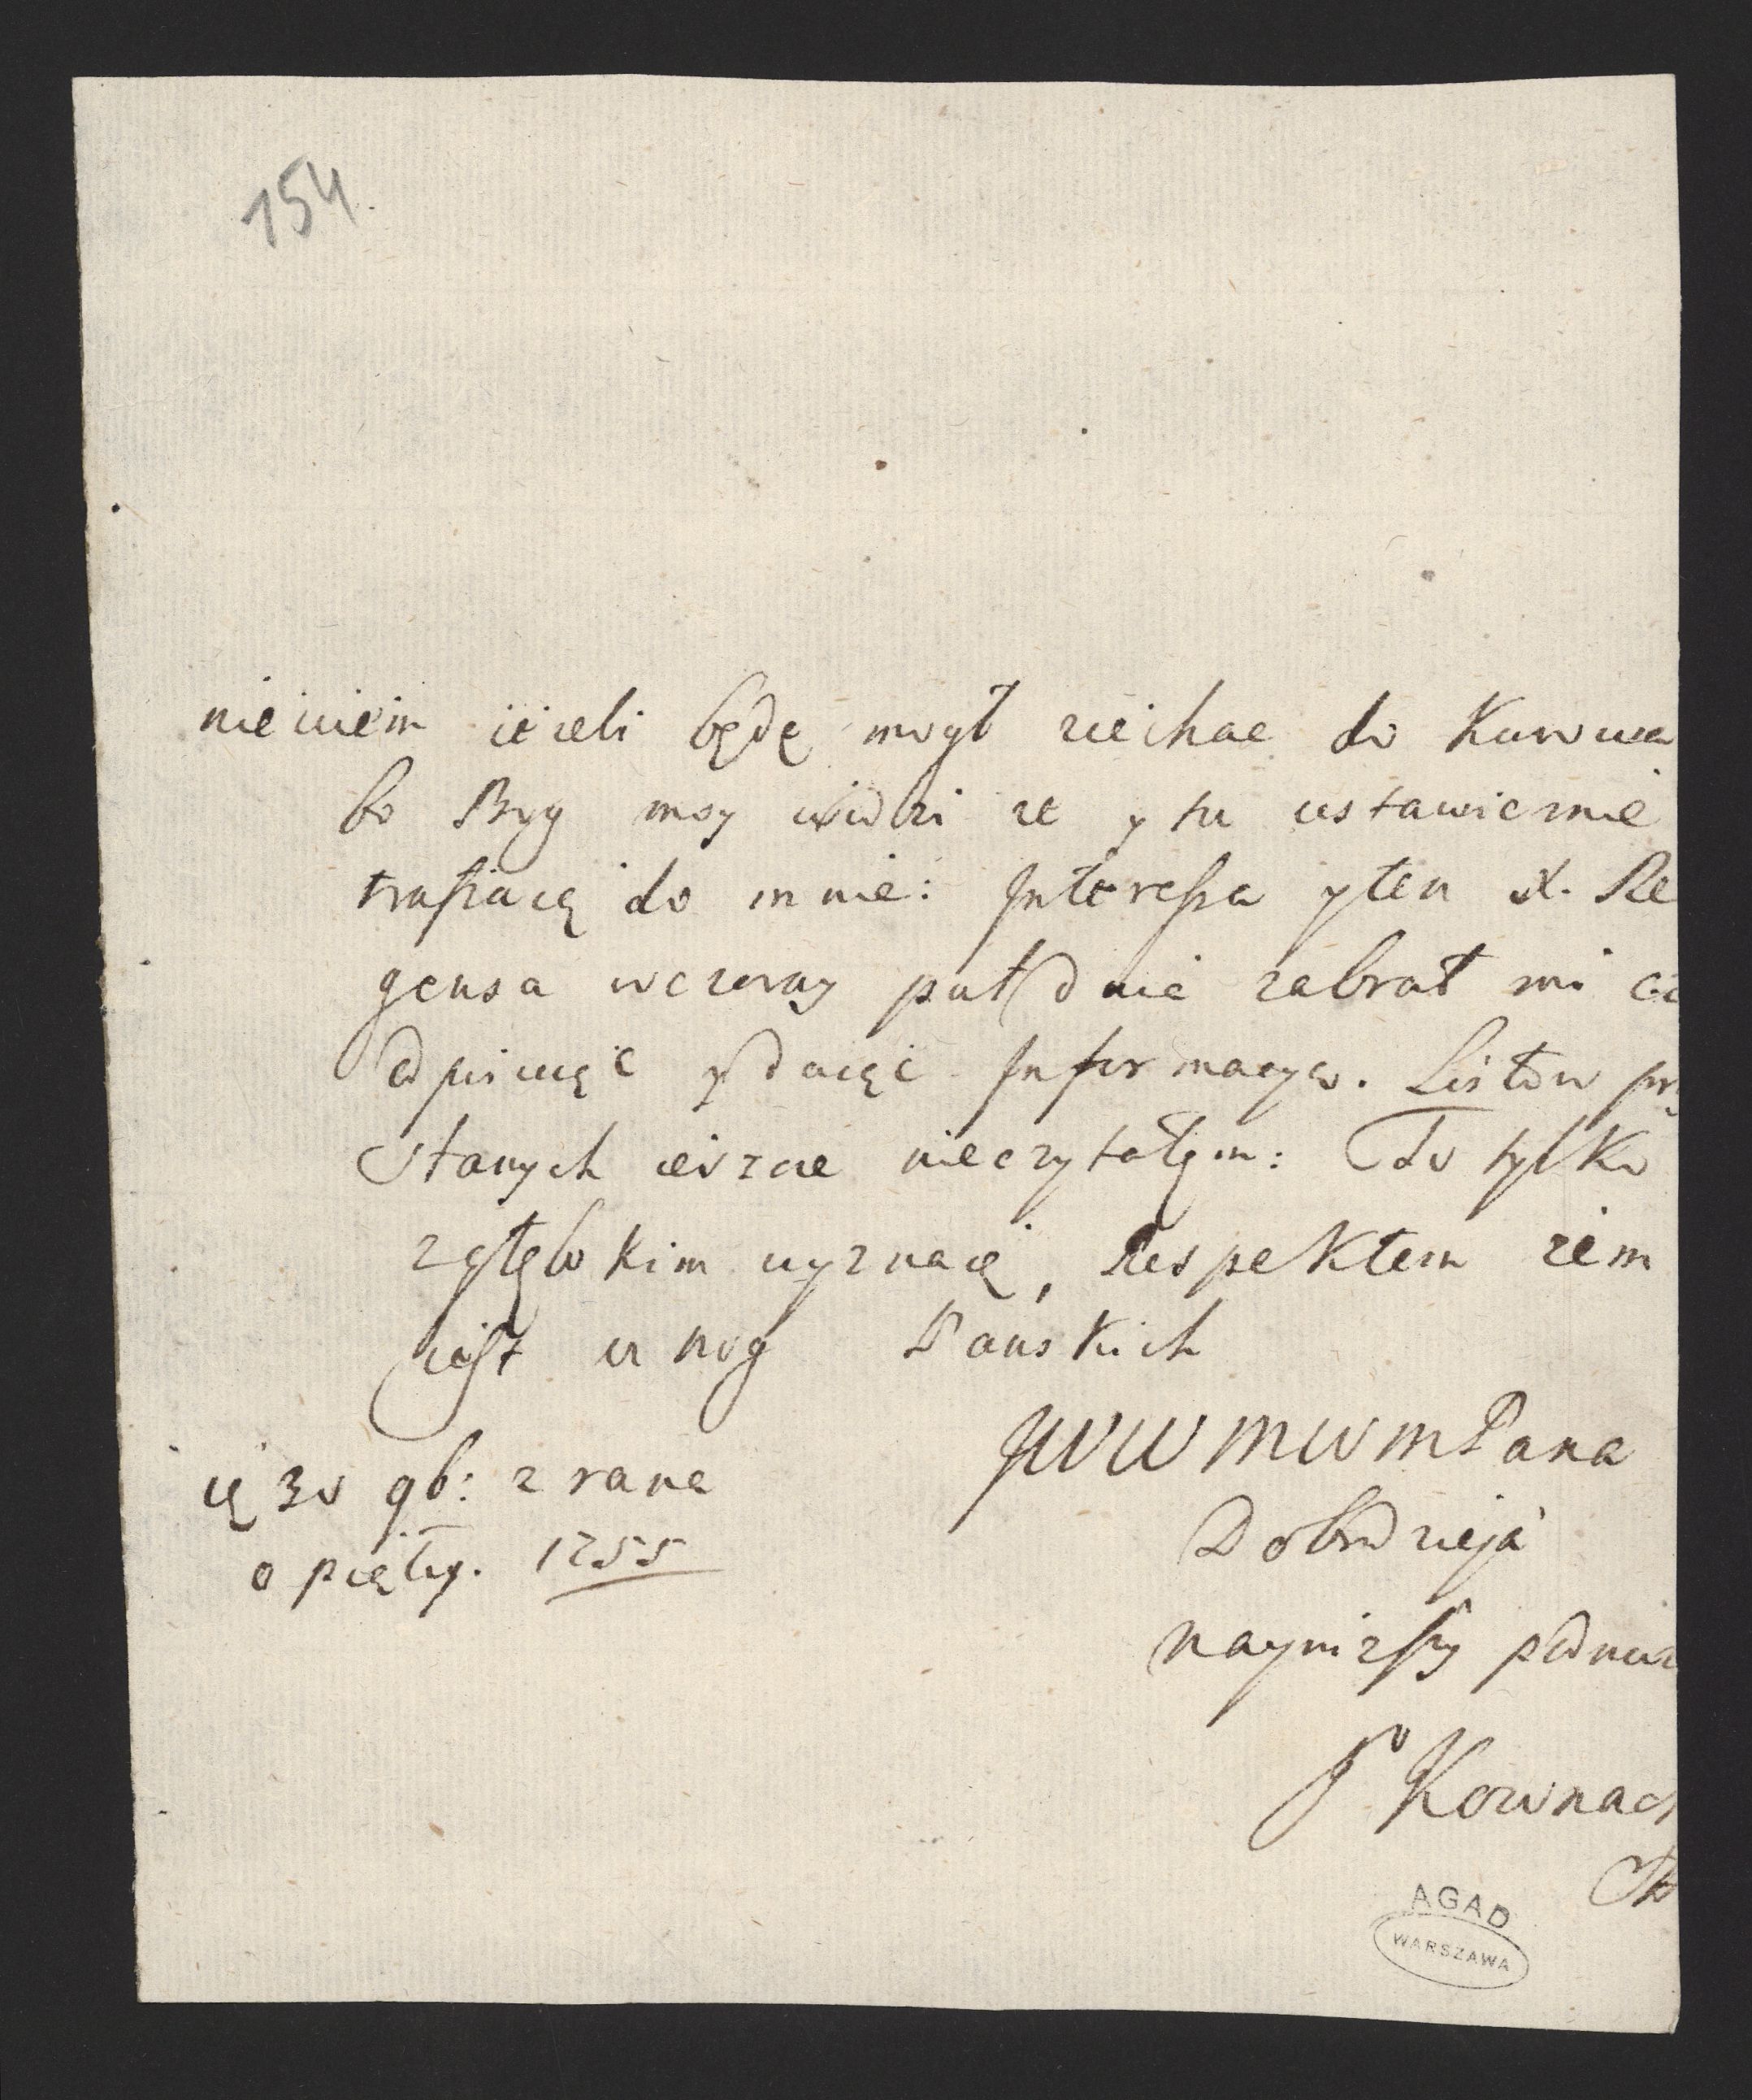 154.
niewiem ieżeli będę mogł ziechac do Kurowa
bo Bog moy widzi że y tu ustawicznie
trafiaią do mnie: Interessa y ten X. Re
gensa wczoray puł dnia zabrał mi
odpisuięc y daięc Informacyą. Listow prz
słanych ieszcze nieczytałem: To tylko
zgłębokim wyznaię, Respektem żem
iest u nog Pańskich
JWWMWMPana
Dobrodzieja
nayniższy podnuż
P Kownack
30 9b: z rana
o piątey. 1755
AGAD
WARSZAWA